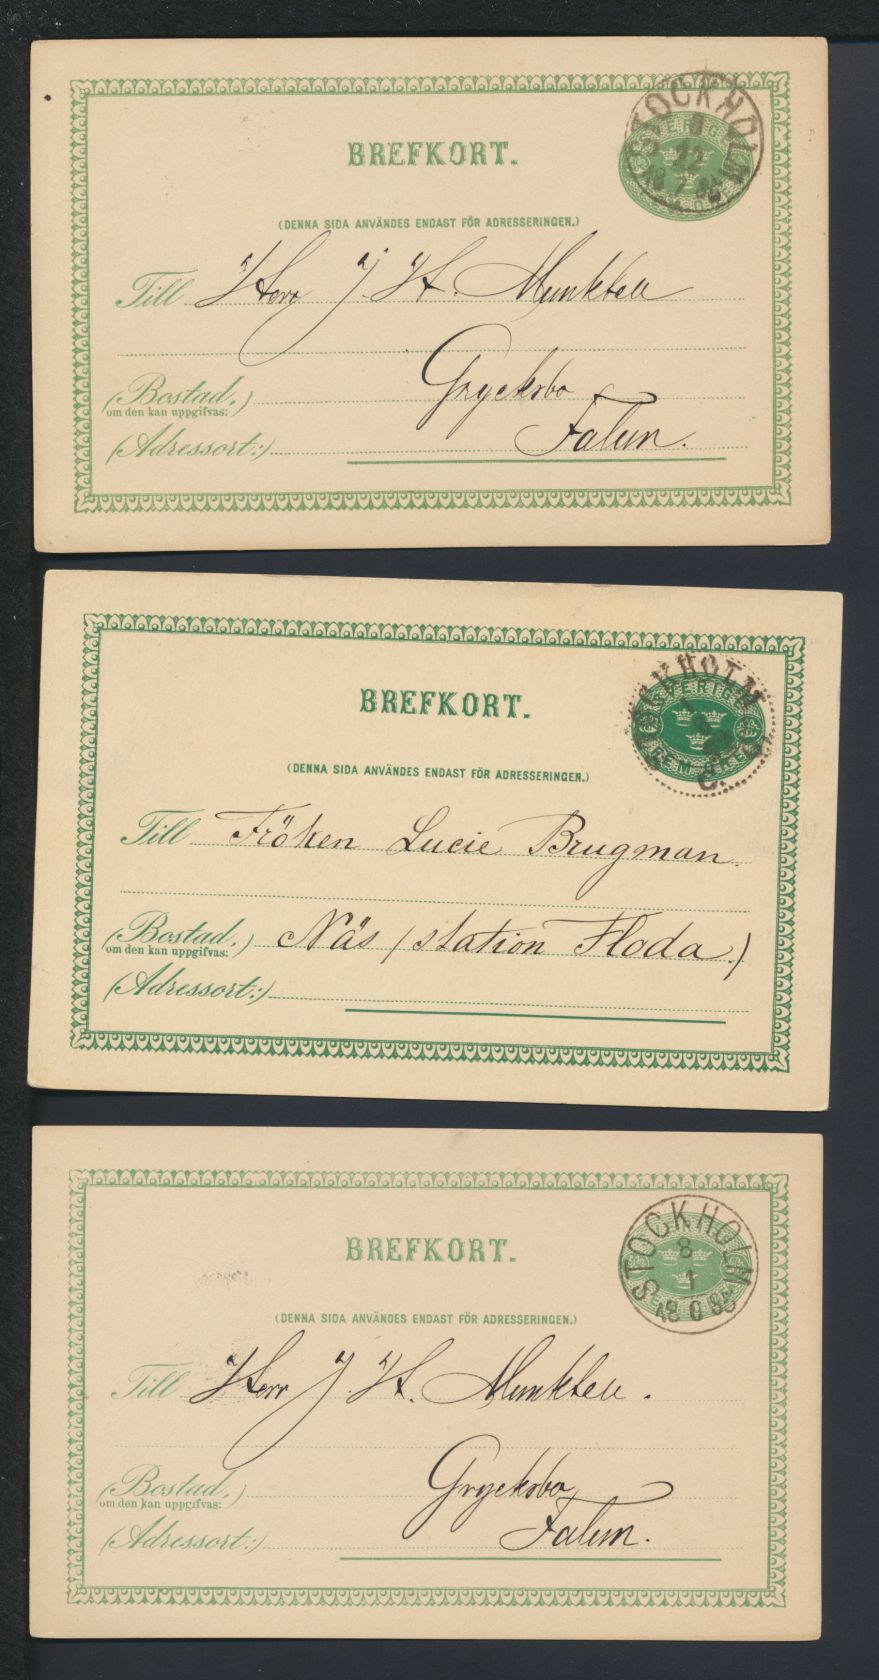 BREFKORT.
STOCKHOLM
SVERIGE
(DENNA SIDA ANVÄNDES ENDAST FÖR ADRESSERINGEN.)
Till Herr J. H. Munktell
(Bostad,)
om den kan uppgifvas:
Grycksbo
(Adressort:)
Falun.
BREFKORT.
STOCKHOLM
SVERIGE
FEM ÖRE
(DENNA SIDA ANVÄNDES ENDAST FÖR ADRESSERINGEN.)
Till Fröken Lucie Brugman.
(Bostad,) Näs (station Floda.)
om den kan uppgifvas:
(Adressort:)
BREFKORT.
STOCKHOLM
8
1
(DENNA SIDA ANVÄNDES ENDAST FÖR ADRESSERINGEN.)
Till Herr J. H. Munktell.
(Bostad,)
om den kan uppgifvas:
Grycksbo
(Adressort:)
Falun.